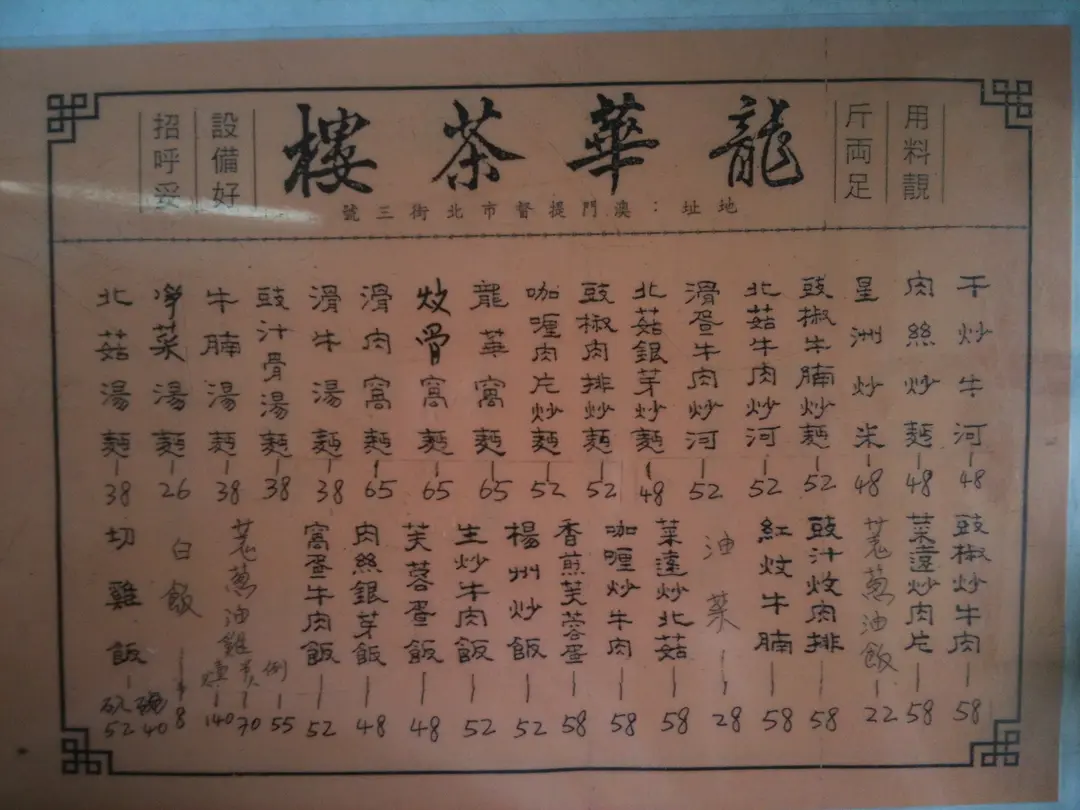 龍華茶樓
用料靚
斤両足
設備好
招呼妥
地址：澳門提督市北街三號
干炒牛河—48
肉絲炒麵—48
星洲炒米—48
豉椒牛腩炒麵—52
北菇牛肉炒河—52
滑蛋牛肉炒河—52
北菇銀芽炒麵—48
豉椒肉排炒麵—52
咖喱肉片炒麵—52
龍華窩麵—65
炆骨窩麵—65
滑肉窩麵—65
滑牛湯麵—38
豉汁骨湯麵—38
牛腩湯麵—38
淨菜湯麵—26
北菇湯麵—38
豉椒炒牛肉—58
菜遠炒肉片—58
茺葱油飯—22
豉汁炆肉排—58
紅炆牛腩—58
油菜—28
菜遠炒北菇—58
咖喱炒牛肉—58
香煎芙蓉蛋—58
楊州炒飯—52
生炒牛肉飯—52
芙蓉蛋飯—48
肉絲銀芽飯—48
窩蛋牛肉飯—52
茺葱油雞 例—55 半—70 140
白飯—8
切雞飯— 52 碗40